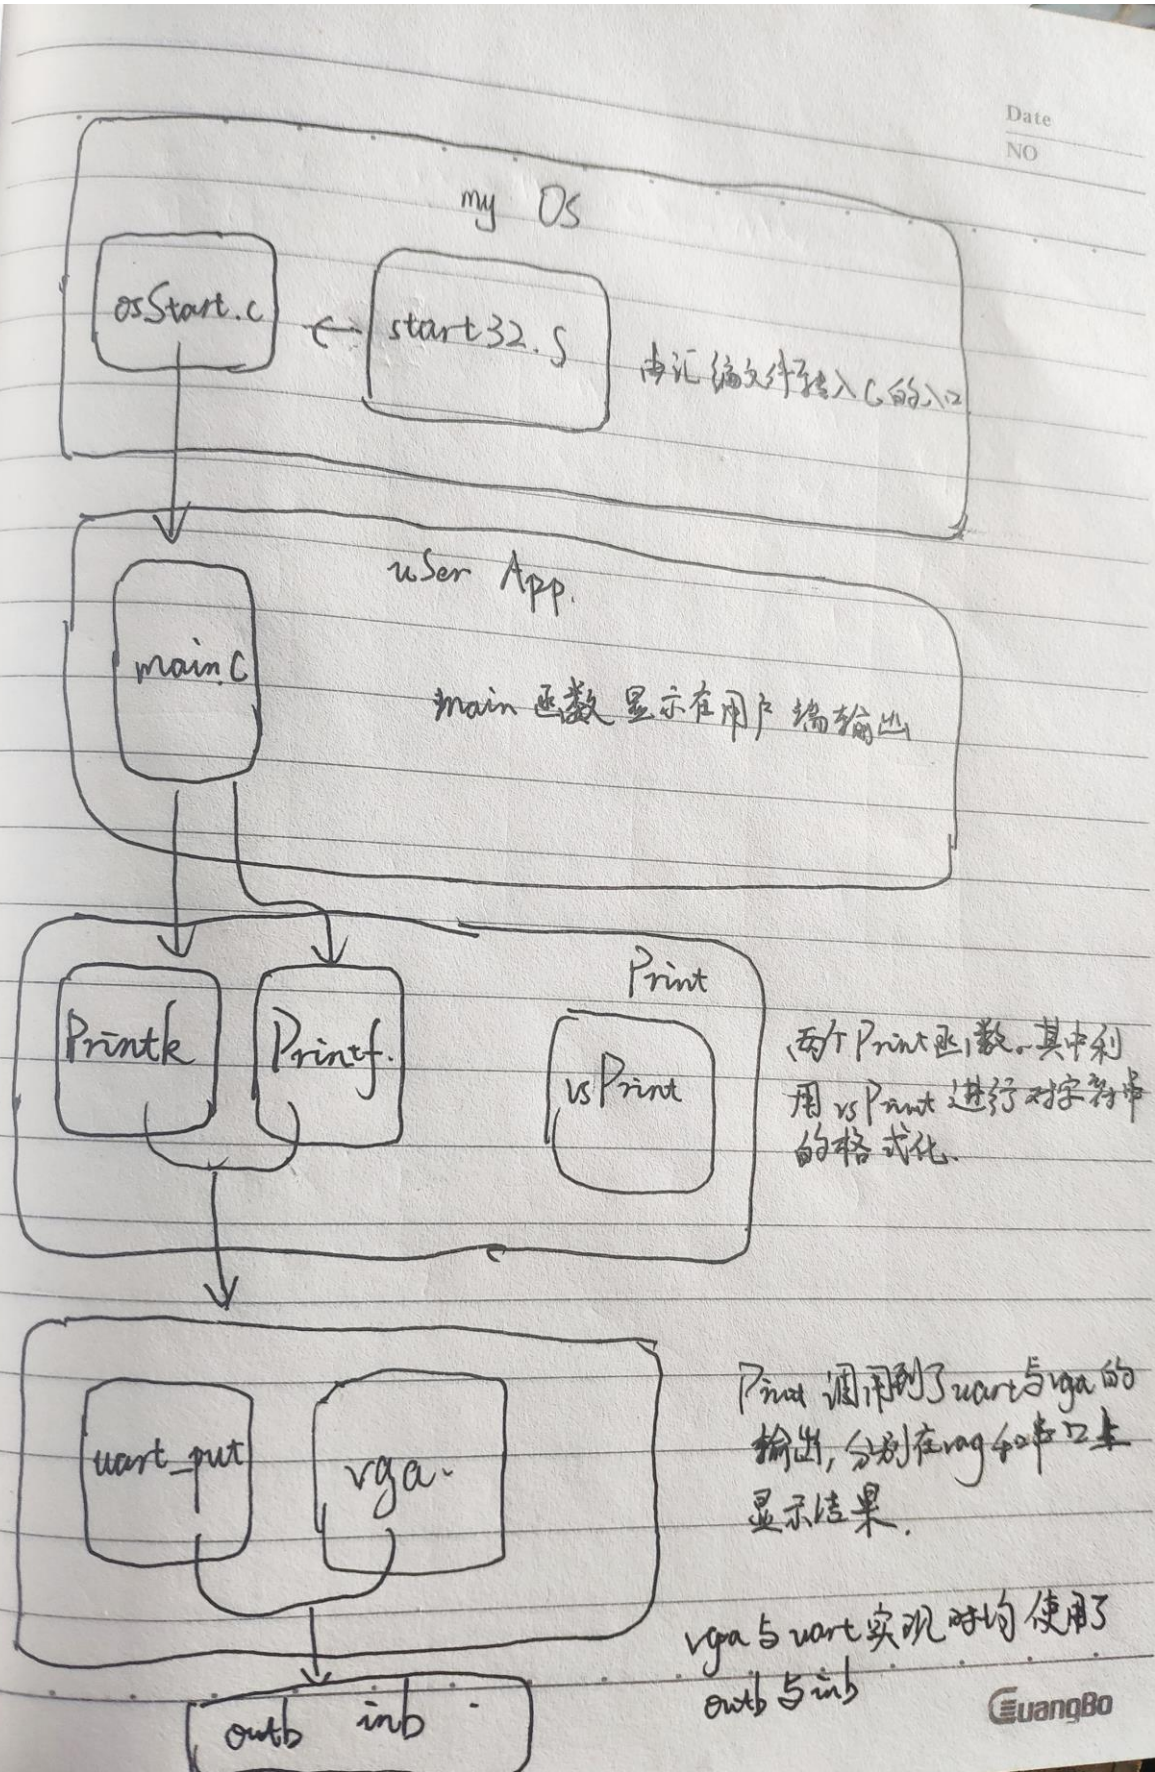 Date
NO
my OS
osStart.c
start32.S
由汇编文件转入C的入口
user App.
main.c
main函数显示在用户端输出
Print
Printk
Printf.
vsPrint
两个Print函数。其中利
用vsPrint进行对字符串
的格式化.
uart_put
vga.
Print调用到了uart与vga的
输出,分别在vag和串口上
显示结果.
vga与uart实现时均使用了
outb与inb
outb inb
GuangBo